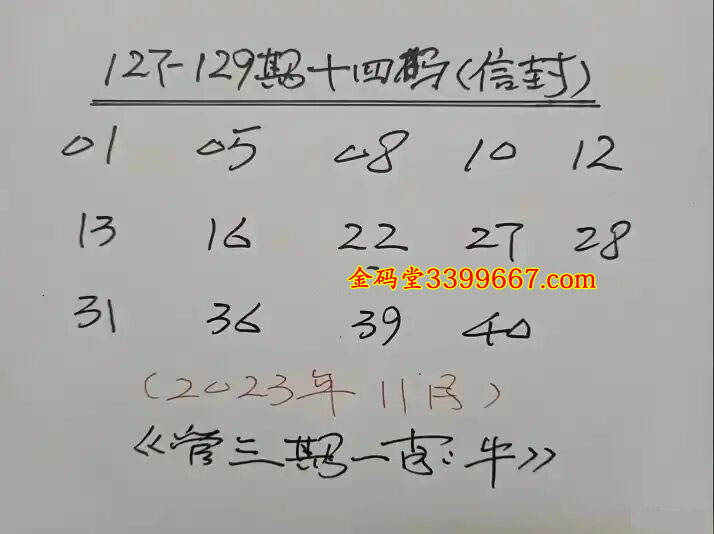 127-129期十四码(信封)
01 05 08 10 12
13 16 22 27 28
金码堂3399667.com
31 36 39 40
(2023年11月)
《管三期一肖:牛》